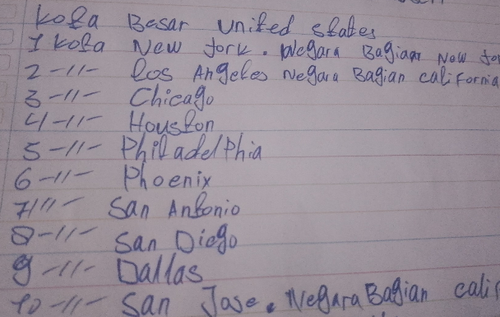 Kota Besar United States
1 Kota New York. Negara Bagian New
2 -11- Los Angeles Negara Bagian california
3 -11- Chicago
4 -11- Houston
5 -11- Philadelphia
6 -11- Phoenix
7 -11- San Antonio
8 -11- San Diego
9 -11- Dallas
10 -11- San Jose. Negara Bagian cali